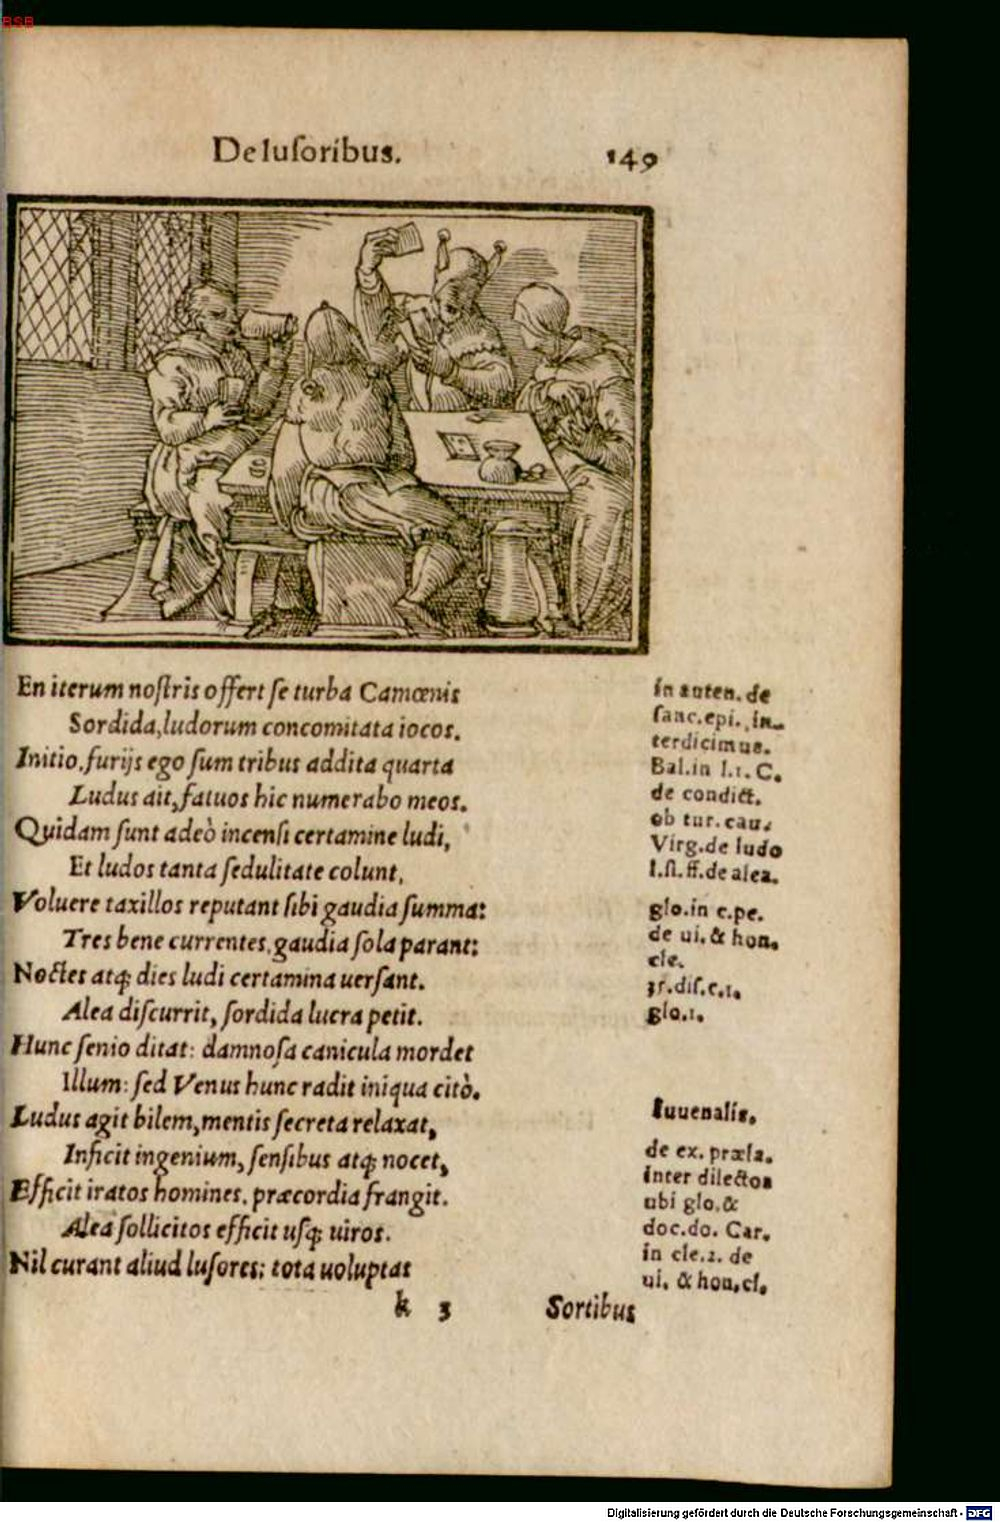 BSB
De luſoribus.
149
En iterum noſtris offert ſe turba Camœnis
Sordida, ludorum concomitata iocos.
Initio, furijs ego ſum tribus addita quarta
Ludus ait, fatuos hic numerabo meos.
Quidam ſunt adeò incenſi certamine ludi,
Et ludos tanta ſedulitate colunt,
Voluere taxillos reputant ſibi gaudia ſumma:
Tres bene currentes, gaudia ſola parant:
Noctes atq; dies ludi certamina uerſant.
Alea diſcurrit, ſordida lucra petit.
Hunc ſenio ditat: damnoſa canicula mordet
Illum: ſed Venus hunc radit iniqua citò.
Ludus agit bilem, mentis ſecreta relaxat,
Inficit ingenium, ſenſibus atq; nocet,
Efficit iratos homines, præcordia frangit.
Alea ſollicitos efficit uſq; uiros.
Nil curant aliud luſores: tota uoluptas
in auten. de
ſanc. epi. in-
terdicimus.
Bal. in l.1. C.
de condict.
ob tur. cau.
Virg. de ludo
l. ſi. ff. de alea.
glo. in c. pe.
de ui. & hon.
cle.
35. diſ. c. 1.
glo. 1.
Iuuenalis.
de ex. præla.
inter dilectos
ubi glo. &
doc. do. Car.
in cle. 2. de
ui. & hon. cl.
k 3
Sortibus
Digitalisierung gefördert durch die Deutsche Forschungsgemeinschaft - DFG